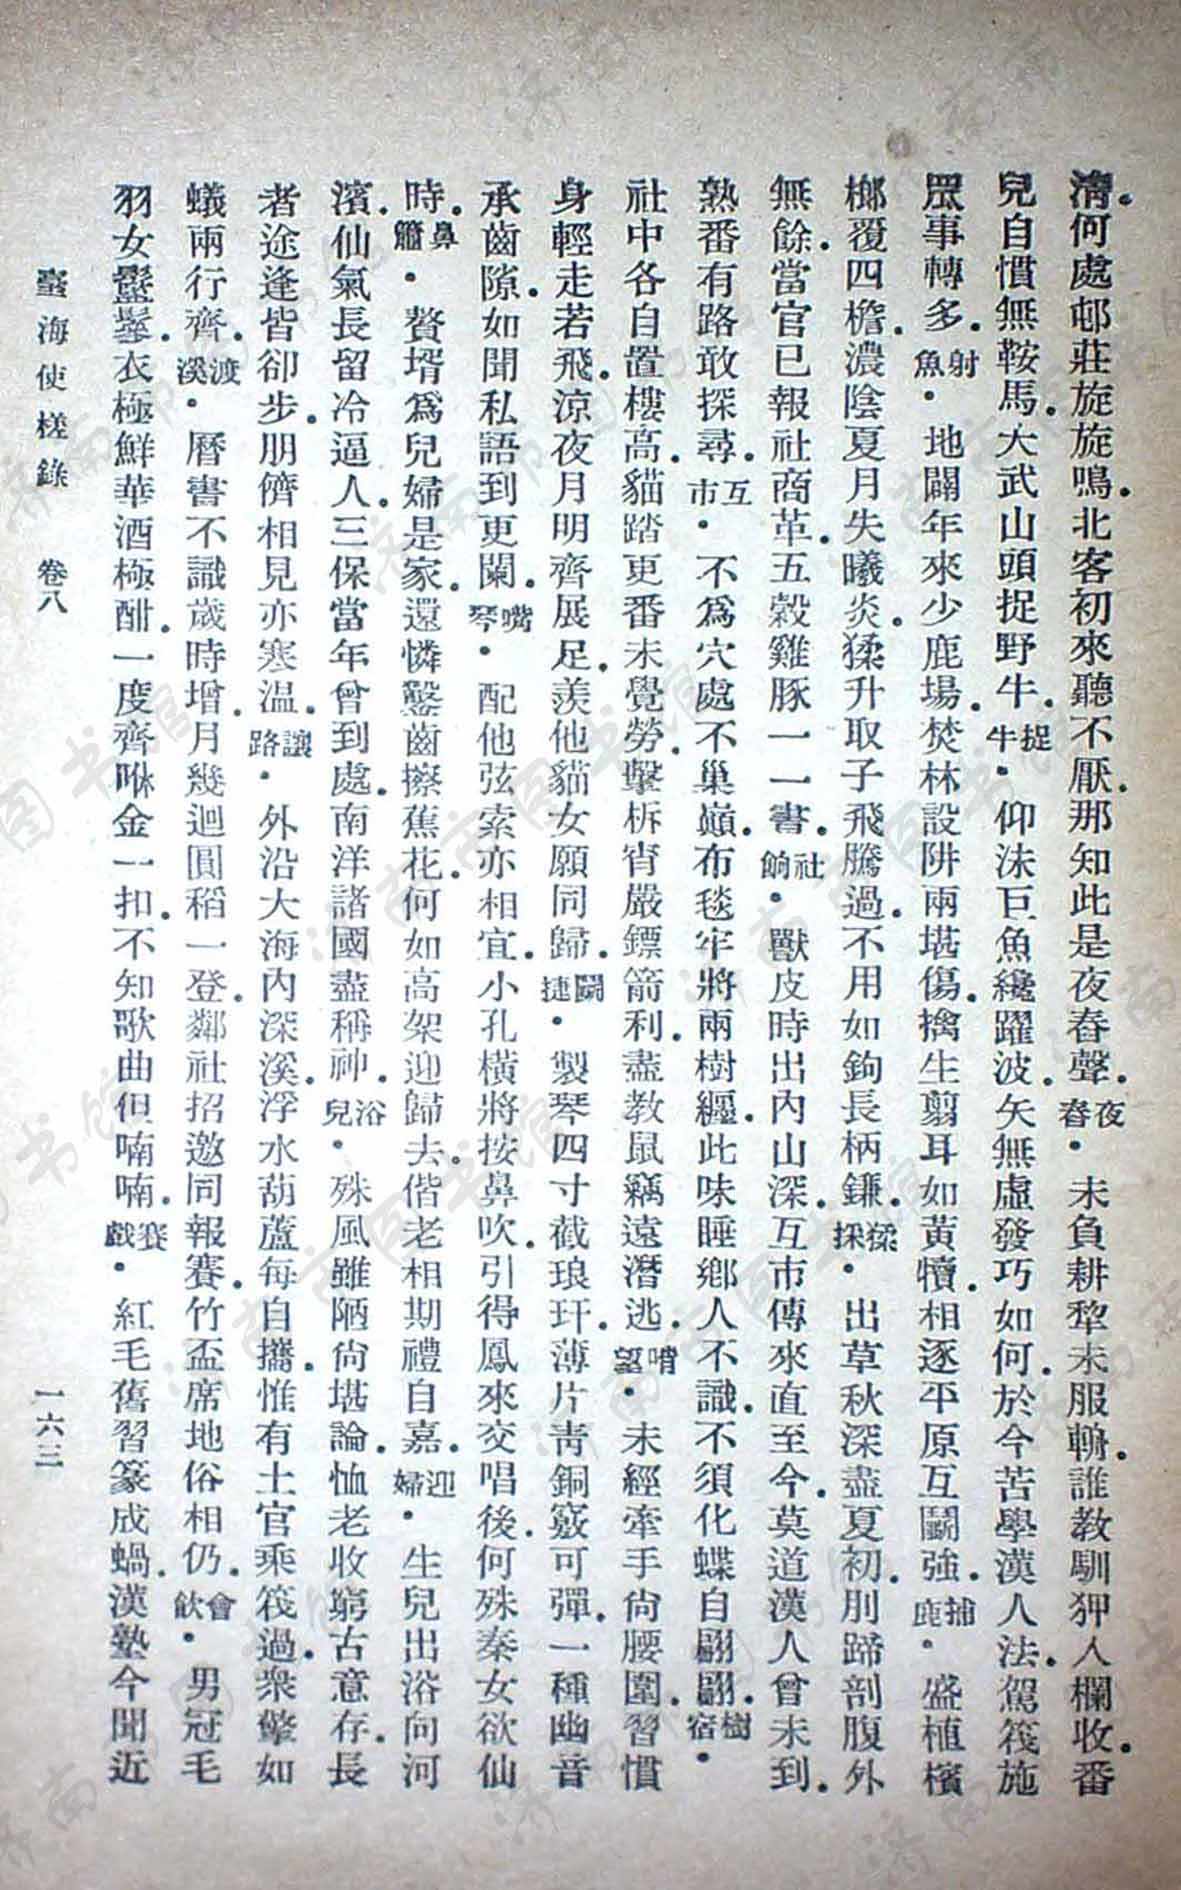 淸。何處邨莊旋旋鳴。北客初來聽不厭。那知此是夜舂聲。夜舂。未負耕犂未服輈。誰教馴狎入欄收。番
兒自慣無鞍馬。大武山頭捉野牛。捉牛。仰沫巨魚纔躍波。矢無虛發巧如何。於今苦學漢人法。駕筏施
罛事轉多。射魚。地闢年來少鹿場。焚林設阱兩堪傷。擒生翦耳如黃犢。相逐平原互鬭強。捕鹿。盛植檳
榔覆四檐。濃陰夏月失曦炎。猱升取子飛騰過。不用如鉤長柄鐮。猱採。出草秋深盡夏初。刖蹄剖腹外
無餘。當官已報社商革。五穀雞豚一一書。社餉。獸皮時出內山深。互市傳來直至今。莫道漢人曾未到。
熟番有路敢探尋。互市。不爲穴處不巢巔。布毯牢將兩樹纏。此味睡鄉人不識。不須化蝶自翩翩。樹宿。
社中各自置樓高。貓踏更番未覺勞。擊柝宵嚴鏢箭利。盡教鼠竊遠潛逃。哨望。未經牽手尙腰圍。習慣
身輕走若飛。涼夜月明齊展足。羨他貓女願同歸。鬭捷。製琴四寸截琅玕。薄片靑銅竅可彈。一種幽音
承齒隙。如聞私語到更闌。嘴琴。配他弦索亦相宜。小孔橫將按鼻吹。引得鳳來交唱後。何殊秦女欲仙
時。鼻簫。贅壻爲兒婦是家。還憐鑿齒擦蕉花。何如高架迎歸去。偕老相期禮自嘉。迎婦。生兒出浴向河
濱。仙氣長留冷逼人。三保當年曾到處。南洋諸國盡稱神。浴兒。殊風雖陋尙堪論。恤老收窮古意存。長
者途逢皆卻步。朋儕相見亦寒溫。讓路。外沿大海內深溪。浮水葫蘆每自攜。惟有土官乘筏過。衆擎如
蟻兩行齊。渡溪。曆書不識歲時增。月幾迴圓稻一登。鄰社招邀同報賽。竹盃席地俗相仍。會飮。男冠毛
羽女鬖鬖。衣極鮮華酒極酣。一度齊咻金一扣。不知歌曲但喃喃。賽戲。紅毛舊習篆成蝸。漢塾今聞近
臺海使槎錄 卷八 一六三